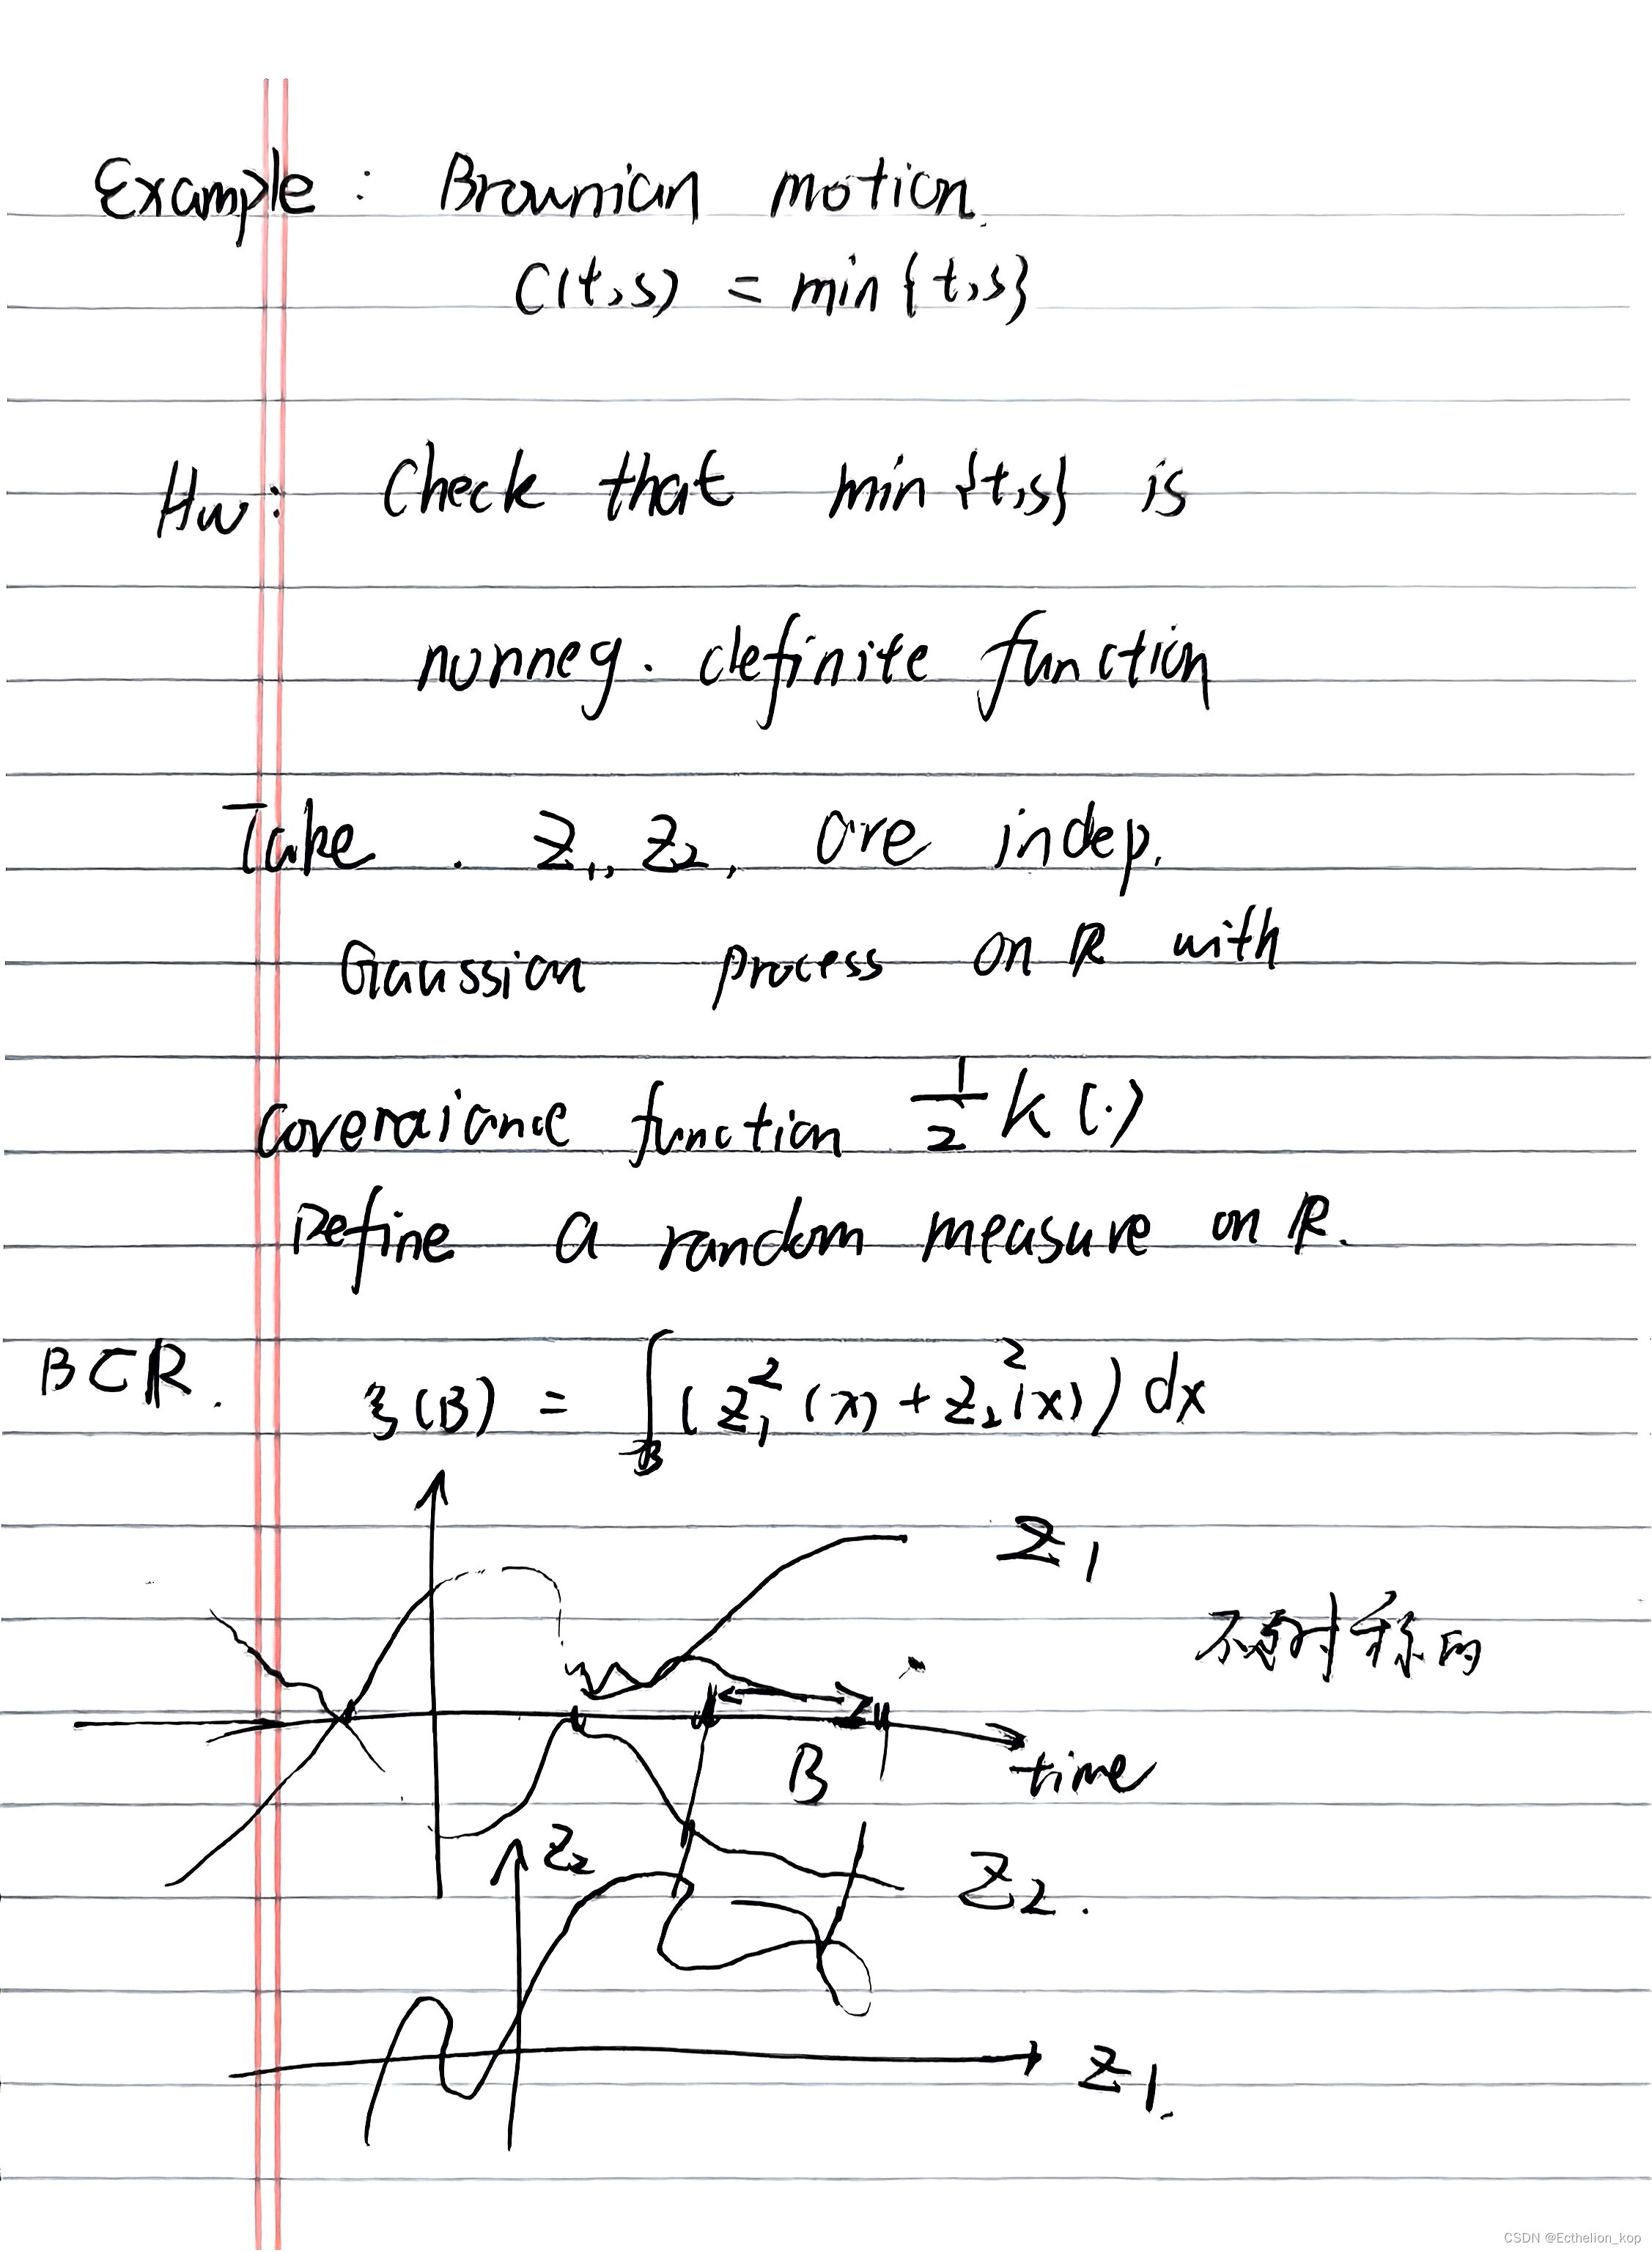 Example : Brownian motion.
C(t,s) = min{t,s}
Hw: Check that min{t,s} is
nonneg. definite function
Take . Z₁, Z₂, are indep.
Gaussian process on ℝ with
coveraiance function 1/2 k(·)
Define a random measure on ℝ.
B⊂ℝ. ξ(B) = ∫_B (Z₁²(x) + Z₂²(x)) dx
Z₁
对称的
B
time
Z₂
Z₂.
Z₁.
CSDN @Ecthelion_kop